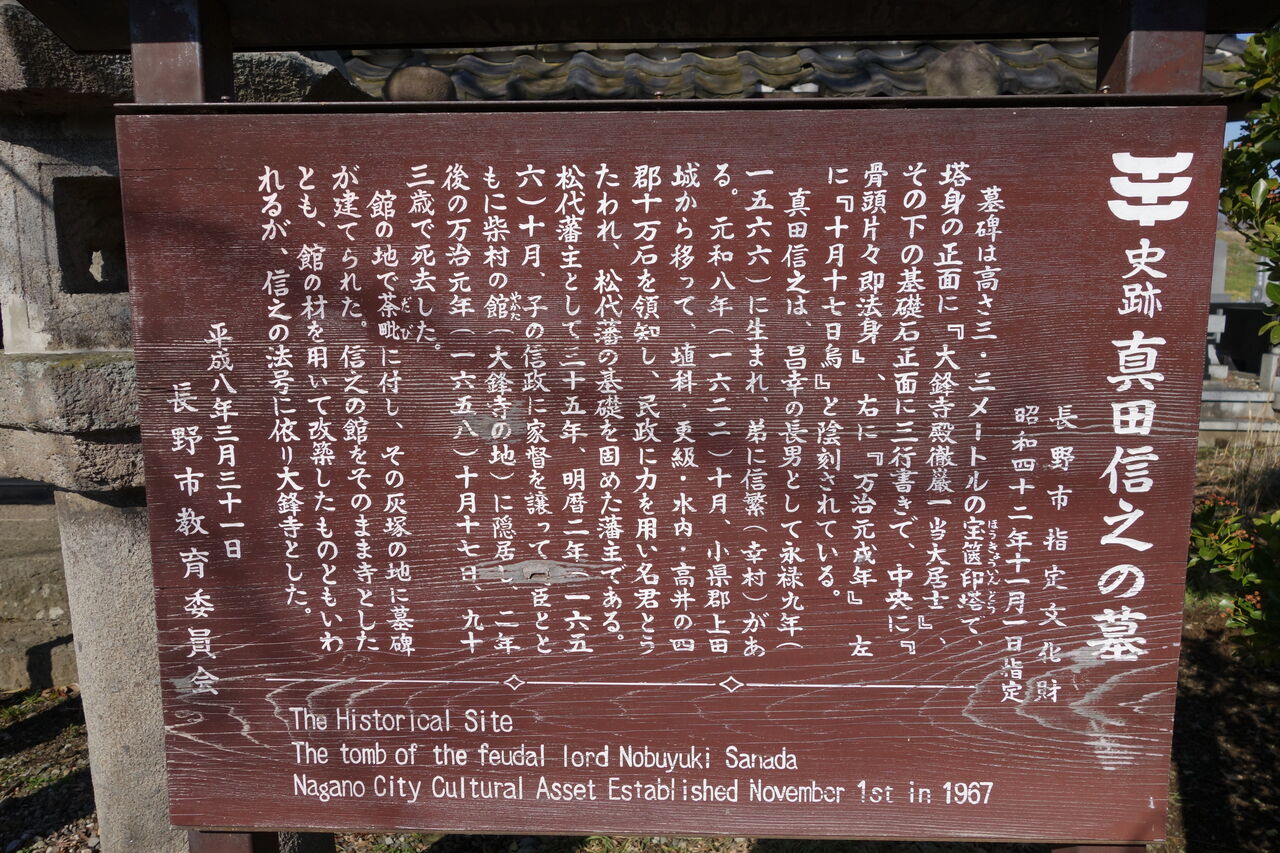 史跡 真田信之の墓
長野市指定文化財
昭和四十二年十一月一日指定
墓碑は高さ三・三メートルの宝篋印塔で
ほうきょういんとう
塔身の正面に『大鋒寺殿徹巌一当大居士』、
その下の基礎石正面に三行書きで、中央に『
骨頭片々即法身』、右に『万治元戌年』 左
に『十月十七日烏』と陰刻されている。
真田信之は、昌幸の長男として永禄九年(
一五六六)に生まれ、弟に信繁(幸村)があ
る。元和八年(一六二二)十月、小県郡上田
城から移って、埴科・更級・水内・高井の四
郡十万石を領知し、民政に力を用い名君とう
たわれ、松代藩の基礎を固めた藩主である。
松代藩主として三十五年、明暦二年(一六五
六)十月、子の信政に家督を譲って 臣とと
もに柴村の館(大鋒寺の地)に隠居し、二年
やかた
後の万治元年(一六五八)十月十七日、九十
三歳で死去した。
館の地で茶毗に付し、その灰塚の地に墓碑
だび
が建てられた。信之の館をそのまま寺とした
とも、館の材を用いて改築したものともいわ
れるが、信之の法号に依り大鋒寺とした。
平成八年三月三十一日
長野市教育委員会
The Historical Site
The tomb of the feudal lord Nobuyuki Sanada
Nagano City Cultural Asset Established November 1st in 1967